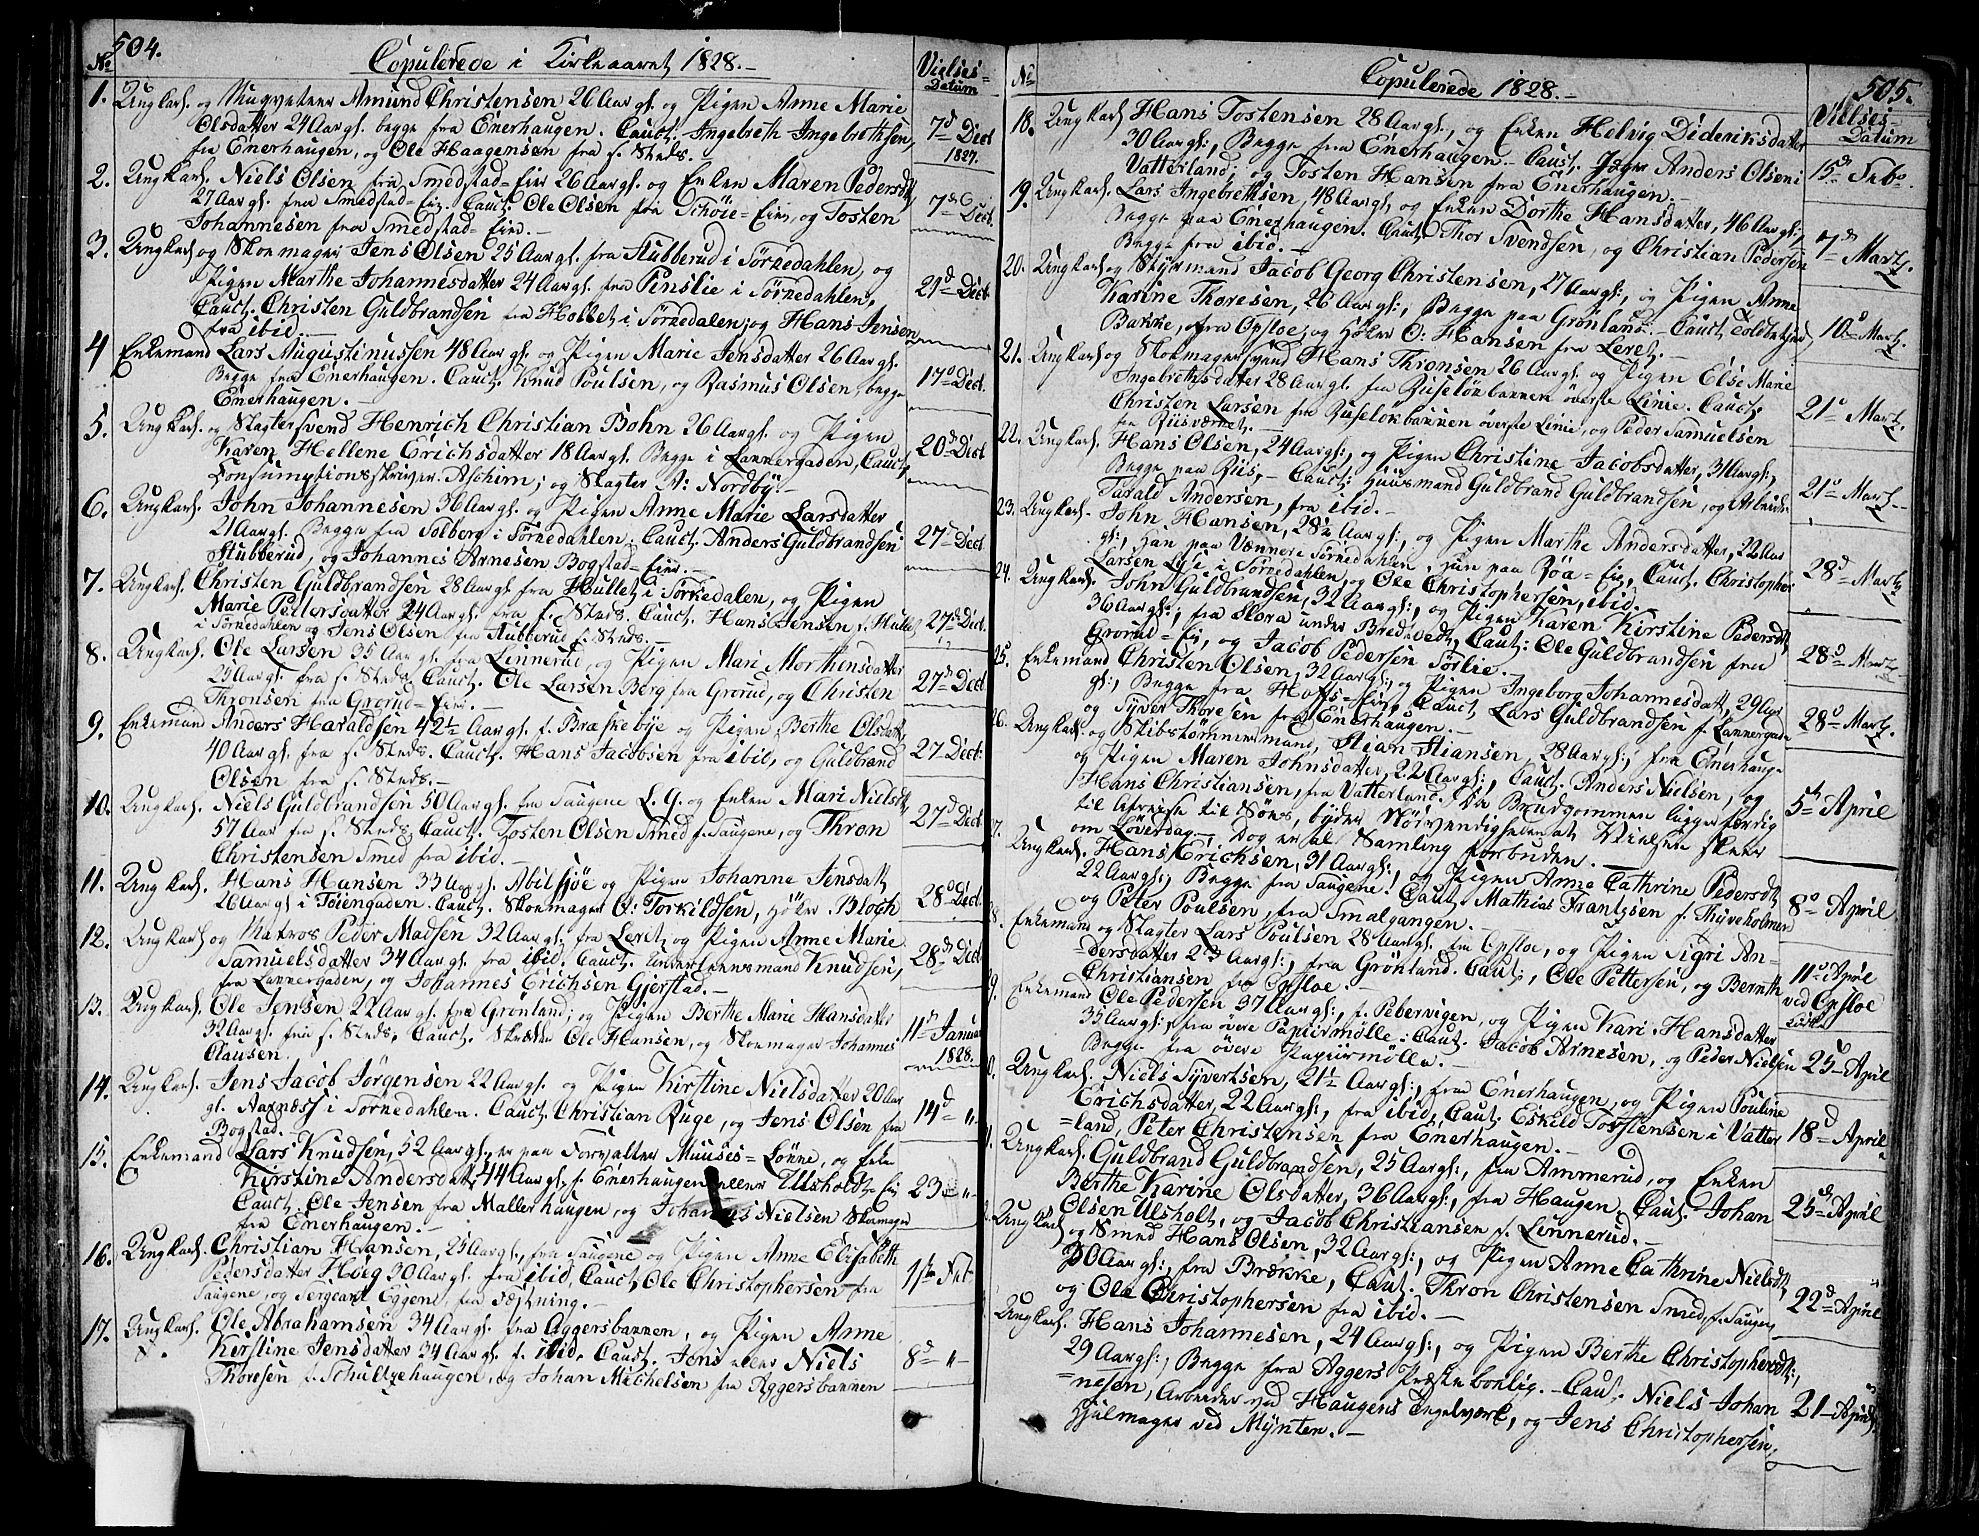 504.
Copulerede i Kirkeaaret 1828.-
No
Vielses-
Datum
1. Ungkarl og Amund Christensen 26 Aar gl. og Pigen Anne Marie
Olsdatter 24 Aar gl. begge fra Enerhaugen. Cauct. Ingebreth Ingebrethsen,
fra Enerhaugen, og Ole Haagensen fra s. Steds.
7d Dect 1827.
2. Ungkarl. Niels Olsen fra Smedstad-Eier 26 Aar gl. og Enken Maren Pedersdt,
27 Aar gl. fra Smedstad-Eie. Cauct. Ole Olsen fra Schöie-Eier, og Tosten
Johannesen fra Smedstad-Eier.-
7de Dect.
3. Ungkarl og Skomager Jens Olsen 25 Aar gl. fra Stubberud i Sörkedahlen, og
Pigen Marthe Johannesdatter 24 Aar gl. fra Pinslie i Sörkedahlen,
Cauct. Christen Guldbrandsen fra Hollet i Sörkedalen; og Hans Jensen
fra ibid.-
21d Dect.
4 Enkemand Lars Augustinussen 48 Aar gl. og Pigen Marie Jensdatter 26 Aar gl.
Begge fra Enerhaugen. Cauct. Knud Poulsen, og Rasmus Olsen, begge
Enerhaugen.-
17d Dect.
5. Ungkarl og Slagtersvend Henrich Christian Bohn 26 Aar gl. og Pigen
Karen Hellene Erichsdatter 18 Aar gl. Begge i Lannergaden, Cauct.
Consumptionsskriver Aschim; og Slagter A: Nordby.-
20d Dect
6. Ungkarl. John Johannesen 36 Aar gl. og Pigen Anne Marie Larsdatter
21 Aar gl. Begge fra Solberg i Sörkedahlen. Cauct. Anders Guldbrandsen
Stubberud, og Johannes Arnesen Bogstad-Eier.-
27d Dect
7. Ungkarl. Christen Guldbrandsen 28 Aar gl. fra Hullet i Sörkedalen, og Pigen
Marie Pettersdatter 24 Aar gl. fra s. Steds. Cauct. Hans Jensen f. Hullet
i Sörkedahlen og Jens Olsen fra Stubberud s. Steds.-
27d Dect.
8. Ungkarl. Ole Larsen 35 Aar gl. fra Linnerud, og Pigen Mari Morthensdatter
25 Aar gl. fra s. Steds. Cauct. Ole Larsen Berg fra Grorud, og Christen
Thronsen fra Grorud-Eier.-
27d Dect.
9. Enkemand Anders Haraldsen 42½ Aar gl. f. Bræskebye og Pigen Berthe Olsdatt,
40 Aar gl. fra s. Steds. Cauct. Hans Jacobsen fra ibid, og Guldbrand
Olsen fra s. Steds.-
27 Dect:
10. Ungkarl. Niels Guldbrandsen 50 Aar gl. fra Saugene L. G. og Enken Mari Nielsdt,
57 Aar fra s. Steds, Cauct. Tosten Olsen Smed f. Saugene, og Thron
Christensen Smed fra ibid.-
27d Dect.
11. Ungkarl. Hans Hansen 33 Aar gl. Abilsjöe og Pigen Johanne Jensdatt
26 Aar gl i Töiengaden. Cauct. Skomager O: Torkildsen, Höker Bloch
28d Dect.
12. Ungkarl og Matros Peder Madsen 32 Aar gl. fra Leret, og Pigen Anne Marie
Samuelsdatter 34 Aar gl. fra ibid. Cauct. Knudsen,
fra Lannergaden, og Johannes Erichsen Gjerstad.-
28d Dect
13. Ungkarl. Ole Jensen 22 Aar gl. fra Grønland; og Pigen Berthe Marie Hansdatter
32 Aar gl. fra s. Steds, Cauct. Skrædder Ole Hansen, og Skomager Johannes
Clausen.
11d Januar 1828.
14. Ungkarl. Jens Jacob Jörgensen 22 Aar gl. og Pigen Kirstine Nielsdatter 20 Aar
gl. Aarnæss i Sörkedahlen. Cauct. Christian Ruge, og Jens Olsen fra
Bogstad.
14d "-
15. Enkemand Lars Knudsen, 52 Aar gl., er paa Forvalter Muuses-Lökke, og Enke
Kirstine Andersdatt, 44 Aar gl. f. Enerhaugen eller Ulsholdt-Eie
Cauct. Ole Jensen fra Mallerhaugen, og Johannes Nielsen Skomager
fra Enerhaugen.-
23 "-
16. Ungkarl. Christian Hansen, 25 Aar gl., fra Saugene og Pigen Anne Elisabeth
Pedersdatter Höeg 30 Aar gl. fra ibid, Cauct. Ole Christophersen fra
Saugene, og Sergeant Eggene, fra Fæstning.-
1ste Feb-
17. Ungkarl. Ole Abrahamsen 34 Aar gl. fra Aggersbakken, og Pigen Anne
Kirstine Jensdatter 34 Aar gl. f. ibid. Cauct. Jens eller Niels
Thoresen f. Schultzehaugen, og Johan Michelsen fra Aggersbakken
8d "-
No
Copulerede 1828.-
505.
Vielses-
Datum
18. Ungkarl Hans Tostensen 28 Aar gl., og Enken Helvig Dideriksdatter
30 Aar gl., Begge fra Enerhaugen.- Cauct. Jæger Anders Olsen i
Vatterland, og Tosten Hansen fra Enerhaugen.-
15d Feb.
19. Ungkarl. Lars Ingebrethsen, 48 Aar gl, og Enken Dorthe Hansdatter, 46 Aar gl.,
begge paa Enerhaugen. Cauct. Thor Svendsen, og Christian Pedersen
Begge fra ibid.-
7d Martz.
20. Ungkarl og Styrmand Jacob Georg Christensen, 27 Aar gl:, og Pigen Anne
Karine Thoresen, 26 Aar gl:, Begge paa Grönland.- Cauct.
Bakke, fra Opsloe, og Höker O: Hansen fra Leret.-
10d Martz.
21. Ungkarl og Skomagersvend Hans Thronsen 26 Aar gl. og Pigen Else Marie
Ingebrethsdatter 28 Aar gl. fra Ruselökbakken överste Linie. Cauct.
Christen Larsen fra Ruselökbakken överste Linie, og Peder Samuelsen
fra Riisværket.
21d Martz.
22. Ungkarl. Hans Olsen, 24 Aar gl:, og Pigen Christine Jacobsdatter, 31 Aar gl:,
Begge paa Riis,- Cauct: Huusmand Guldbrand Guldbrandsen, og Arbeids
Tarald Andersen, fra ibid.-
21d Martz.-
23. Ungkarl. John Hansen, 28½ Aar gl:, og Pigen Marthe Andersdatter, 22 Aar
gl:, han paa Vænnere Sörkedahlen, hun paa Röa-Eie, Cauct. Christopher
Larsen Lysе i Sörkedahlen, og Ole Christophersen, ibid.
28d Martz
24. Ungkarl. John Guldbrandsen, 32 Aar gl:, og Pigen Karen Kirstine Pedersdt,
36 Aar gl:, fra Flora under Bredtvedt, Cauct: Ole Guldbrandsen fra
Grorud-Eie, og Jacob Pedersen Sörlie.
28d Martz
25. Enkemand Christen Olsen, 32 Aar gl:, og Pigen Ingeborg Johannesdatt, 29 Aar
gl:, Begge fra Hoffs-Eie, Cauct. Lars Guldbrandsen f. Lannergade
og Syver Thoresen fra Enerhaugen.-
28d Martz.
26. Ungkarl og Skibstömmermand, Stian Stiansen, 28 Aar gl:, fra Enerhauge
og Pigen Maren Johnsdatter, 22 Aar gl:, Cauct. Anders Nielsen, og
Hans Christiansen, fra Vatterland. Da Brudgommen ligger færdig
til Afreise til Söes, byder Nödvendigheden at Vielsen skeer
om Löverdag.- Dog er al Samling forbuden.-
5d April
7. Ungkarl. Hans Erichsen, 31 Aar gl:, og Pigen Anne Cathrine Pedersdt
22 Aar gl:, Begge fra Saugene. Cauct. Mathias Frantzsen f. Thyveholmen
og Peter Poulsen, fra Smalgangen.
8d April
8. Enkemand og Slagter Lars Poulsen 28 Aar gl. fra Opsloe, og Pigen Sigri An-
dersdatter 23 Aar gl:, fra Grönland. Cauct:, Ole Pettersen, og Bernth
Christiansen fra Opsloe.-
11d April
ved Opsloe
9. Enkemand Ole Pedersen 37 Aar gl:, f. Pebervigen, og Pigen Kari Hansdatter
35 Aar gl:, fra övere Papiirmölle. Cauct. Jacob Arnesen, og Peder Nielsen
Begge fra övere Papiirmölle.-
25d April
0. Ungkarl. Niels Syvertsen, 21½ Aar gl:, fra Enerhaugen, og Pigen Pouline
Erichsdatter, 22 Aar gl:, fra ibid, Cauct. Eskild Torstensen i Vatter
=land, Peter Christensen fra Enerhaugen.-
18d April
1. Ungkarl. Guldbrand Guldbrandsen, 25 Aar gl:, fra Ammerud, og Enken
Berthe Karine Olsdatter, 36 Aar gl:, fra Haugen. Cauct. Johan
Olsen Ulsholt, og Jacob Christiansen f. Linnerud.-
25d April
Ungkarl og Smed Hans Olsen, 32 Aar gl:, og Pigen Anne Cathrine Nielsdt,
30 Aar gl:, fra Brække, Cauct. Thron Christensen Smed, f. Saugen
og Ole Christophersen fra ibid.-
22d April
Ungkarl. Hans Johannesen, 24 Aar gl:, og Pigen Berthe Christophersdt:,
29 Aar gl:, Begge fra Aggers Præstebolig.- Cauct. Niels Johan
=nesen, Arbeider ved Haugens Tegelværk, og Jens Christophersen,
Hjulmager ved Mynten.-
21- April